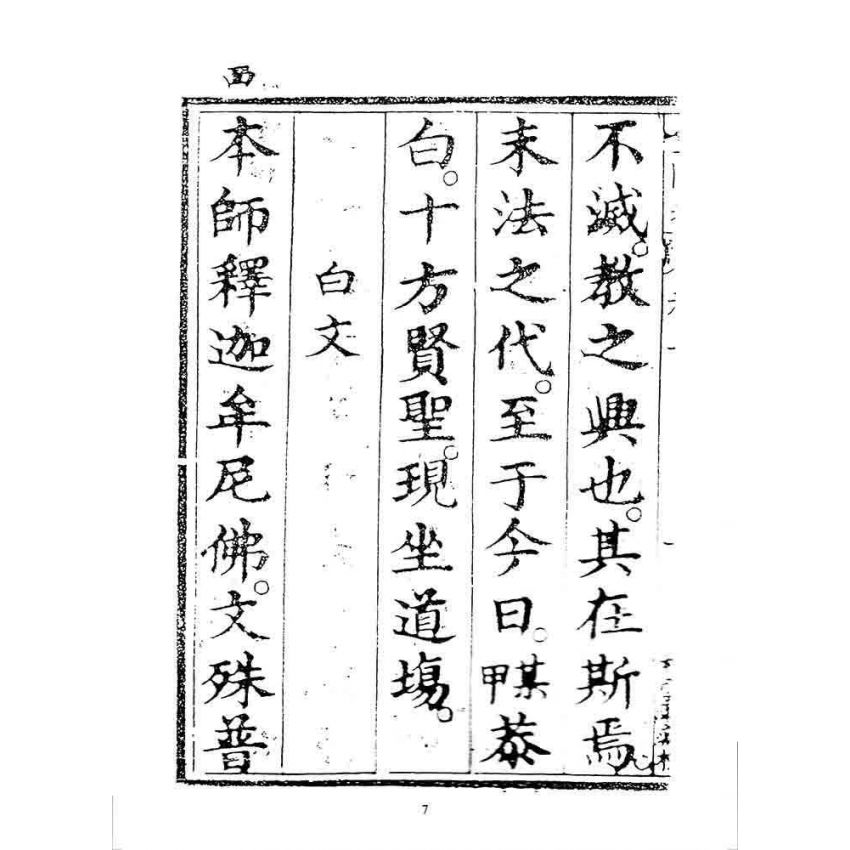 不滅。教之興也。其在斯焉。
末法之代。至于今日。某甲恭
白。十方賢聖。現坐道場。
白文
本師釋迦牟尼佛。文殊普
7